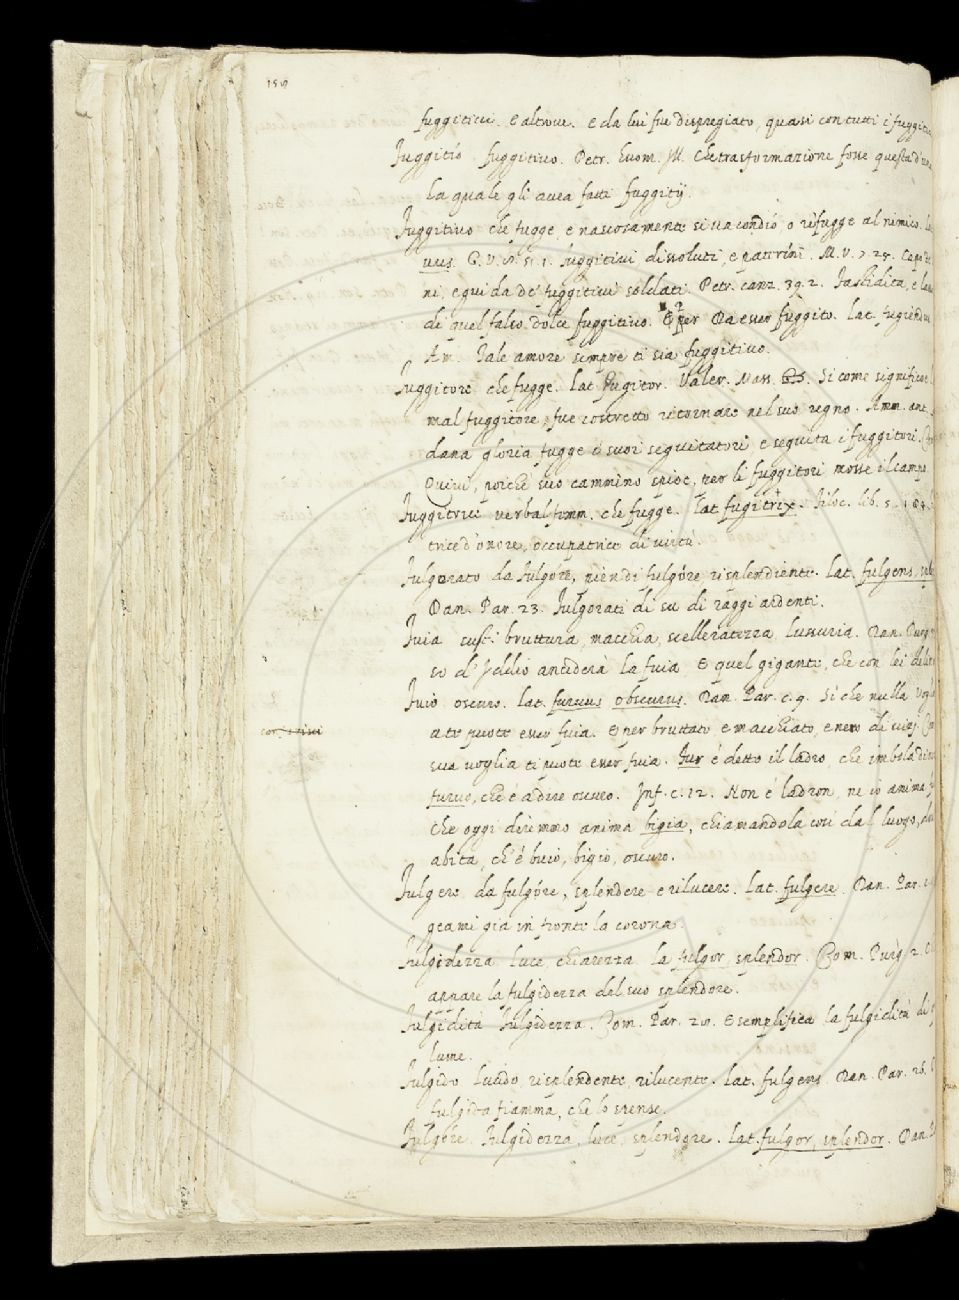 fuggitivi. E altrove. E da lui fue dispregiato, quasi con tutti i fuggitiv
Fuggitío fuggitivo. Petr. huom. Ill. Che trasformazione fosse questa d'una
la quale gli avea fatti fuggitij.
Fuggitivo che fugge, e nascosamente si va con dio, o rifugge al nimico. La
vus. G. V. 51. 1. Fuggitivi dissoluti, e patrini. M. V. 7. 25. Capo de
ni, e guida de' fuggitivi soldati. Petr. canz. 39. 2. Lasciala, e la
di quel falso dolce fuggitivo. E per Da esser fuggito. Lat. fugiendus
Am. Tale amore sempre ti sia fuggitivo.
Fuggitore che fugge. Lat. fugitor. Valer. Mass. Si come significo
mal fuggitore, fue costretto ritornare nel suo regno. Amm. ant.
dana gloria fugge i suoi seguitatori, e seguita i fuggitori.
Quivi, poichè suo cammino spiòe, per li fuggitori mosse il campo
Fuggitrice verbal femm. che fugge. Lat. fugitrix. Filoc. lib. 5. 184.
trice d'onore, occupatrice di virtù.
Fulgorato da Fulgóre, pien di fulgóre risplendiente. Lat. fulgens, sple
Dan. Par. 23. Fulgorati di su di raggi ardenti.
Fuia sust. bruttura, macchia, scelleratezza, lussuria. Dan. Purg.
so di Iddio anciderà la fuia, E quel gigante, che con lei delin
Fuio oscuro. Lat. furvus obscurus. Dan. Par. c. 9. Sì che nulla vogli
a te puote esser fuia. E per bruttato, e macchiato, e nero di vizj.
sua voglia ti puote esser fuia. Fur è detto il ladro, che imbola di
furvo, che è a dire oscuro. Inf. c. 12. Non è ladron, ne io anima f
Che oggi diremmo anima bigia, chiamandola così dal luogo, do
abita, ch'è buio, bigio, oscuro.
Fulgere da fulgóre, splendere e rilucere. Lat. fulgere. Dan. Par.
geami già in fronte la corona.
Fulgidezza luce, chiarezza. La fulgor, splendor. Com. Purg. 2.
appare la fulgidezza del suo splendore.
Fulgidità Fulgidezza. Com. Par. 20. Esemplifica la fulgidità di
lume.
Fulgido Lucido, risplendente, rilucente. Lat. fulgens. Dan. Par. 26.
fulgida fiamma, che lo spense.
Fulgóre Fulgidezza, luce, splendore. Lat. fulgor, splendor. Dan.